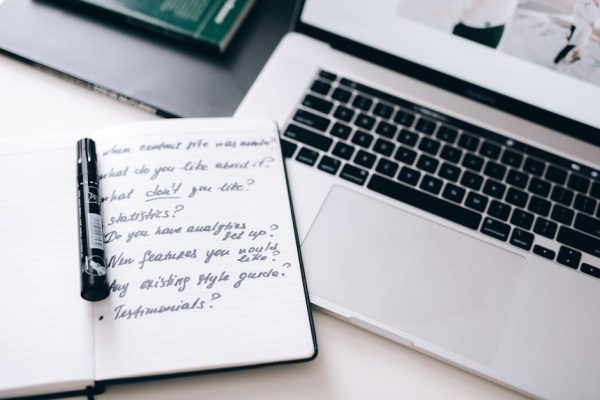 when current site was made?
what do you like about it?
what don't you like?
statistics?
Do you have analytics
set up?
New features you would
like?
Any existing style guide?
• Testimonials?